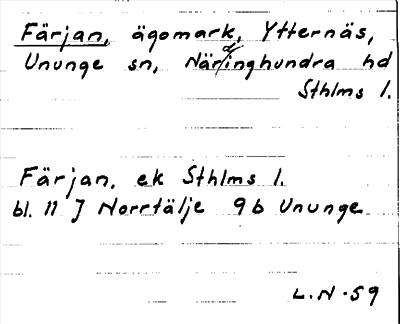 Färjan, ägomark, Ytternäs,
Ununge sn, Närdinghundra hd
Sthlms l.
Färjan, ek Sthlms l.
bl. 11 J Norrtälje 9b Ununge
L.N-59